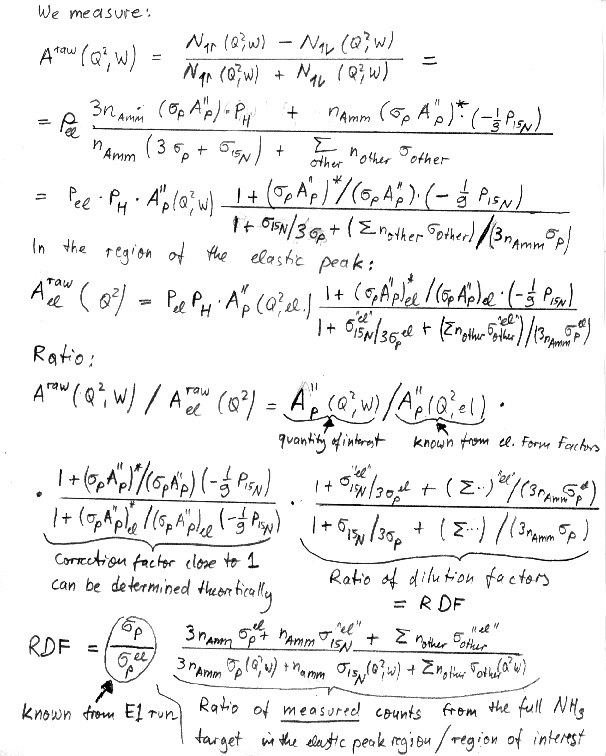 We measure:
A^raw (Q², W) = (N↑↑ (Q²,W) − N↑↓ (Q²,W)) / (N↑↑ (Q²,W) + N↑↓ (Q²,W)) =
= P_el (3n_Amm (σ_p A_p^∥)·P_H + n_Amm (σ_p A_p^∥)*·(−1/9 P_15N)) / (n_Amm (3σ_p + σ_15N) + Σ_other n_other σ_other)
= P_el · P_H · A_p^∥(Q²,W) (1 + (σ_p A_p^∥)*/(σ_p A_p^∥)·(−1/9 P_15N)) / (1 + σ_15N/3σ_p + (Σ n_other σ_other)/(3n_Amm σ_p))
In the region of the elastic peak:
A_el^raw (Q²) = P_el P_H · A_p^∥(Q²,el.) (1 + (σ_p A_p^∥)*_el/(σ_p A_p^∥)_el·(−1/9 P_15N)) / (1 + σ_15N^"el"/3σ_p^el + (Σ n_other σ_other^"el")/(3n_Amm σ_p^el))
Ratio:
A^raw(Q²,W) / A_el^raw (Q²) = A_p^∥(Q²,W) / A_p^∥(Q²,el) ·
quantity of interest known from el. Form Factors
· (1 + (σ_p A_p^∥)*/(σ_p A_p^∥)(−1/9 P_15N)) / (1 + (σ_p A_p^∥)*_el/(σ_p A_p^∥)_el (−1/9 P_15N)) · (1 + σ_15N^"el"/3σ_p^el + (Σ··)^"el"/(3n_Amm σ_p^el)) / (1 + σ_15N/3σ_p + (Σ··)/(3n_Amm σ_p))
Correction factor close to 1 Ratio of dilution factors
can be determined theoretically = RDF
RDF = (σ_p / σ_p^el) (3n_Amm σ_p^el + n_Amm σ_15N^"el" + Σ n_other σ_other^"el") / (3n_Amm σ_p(Q²,W) + n_Amm σ_15N(Q²,W) + Σ n_other σ_other(Q²,W))
known from E1 run Ratio of measured counts from the full NH₃
target in the elastic peak region / region of interest